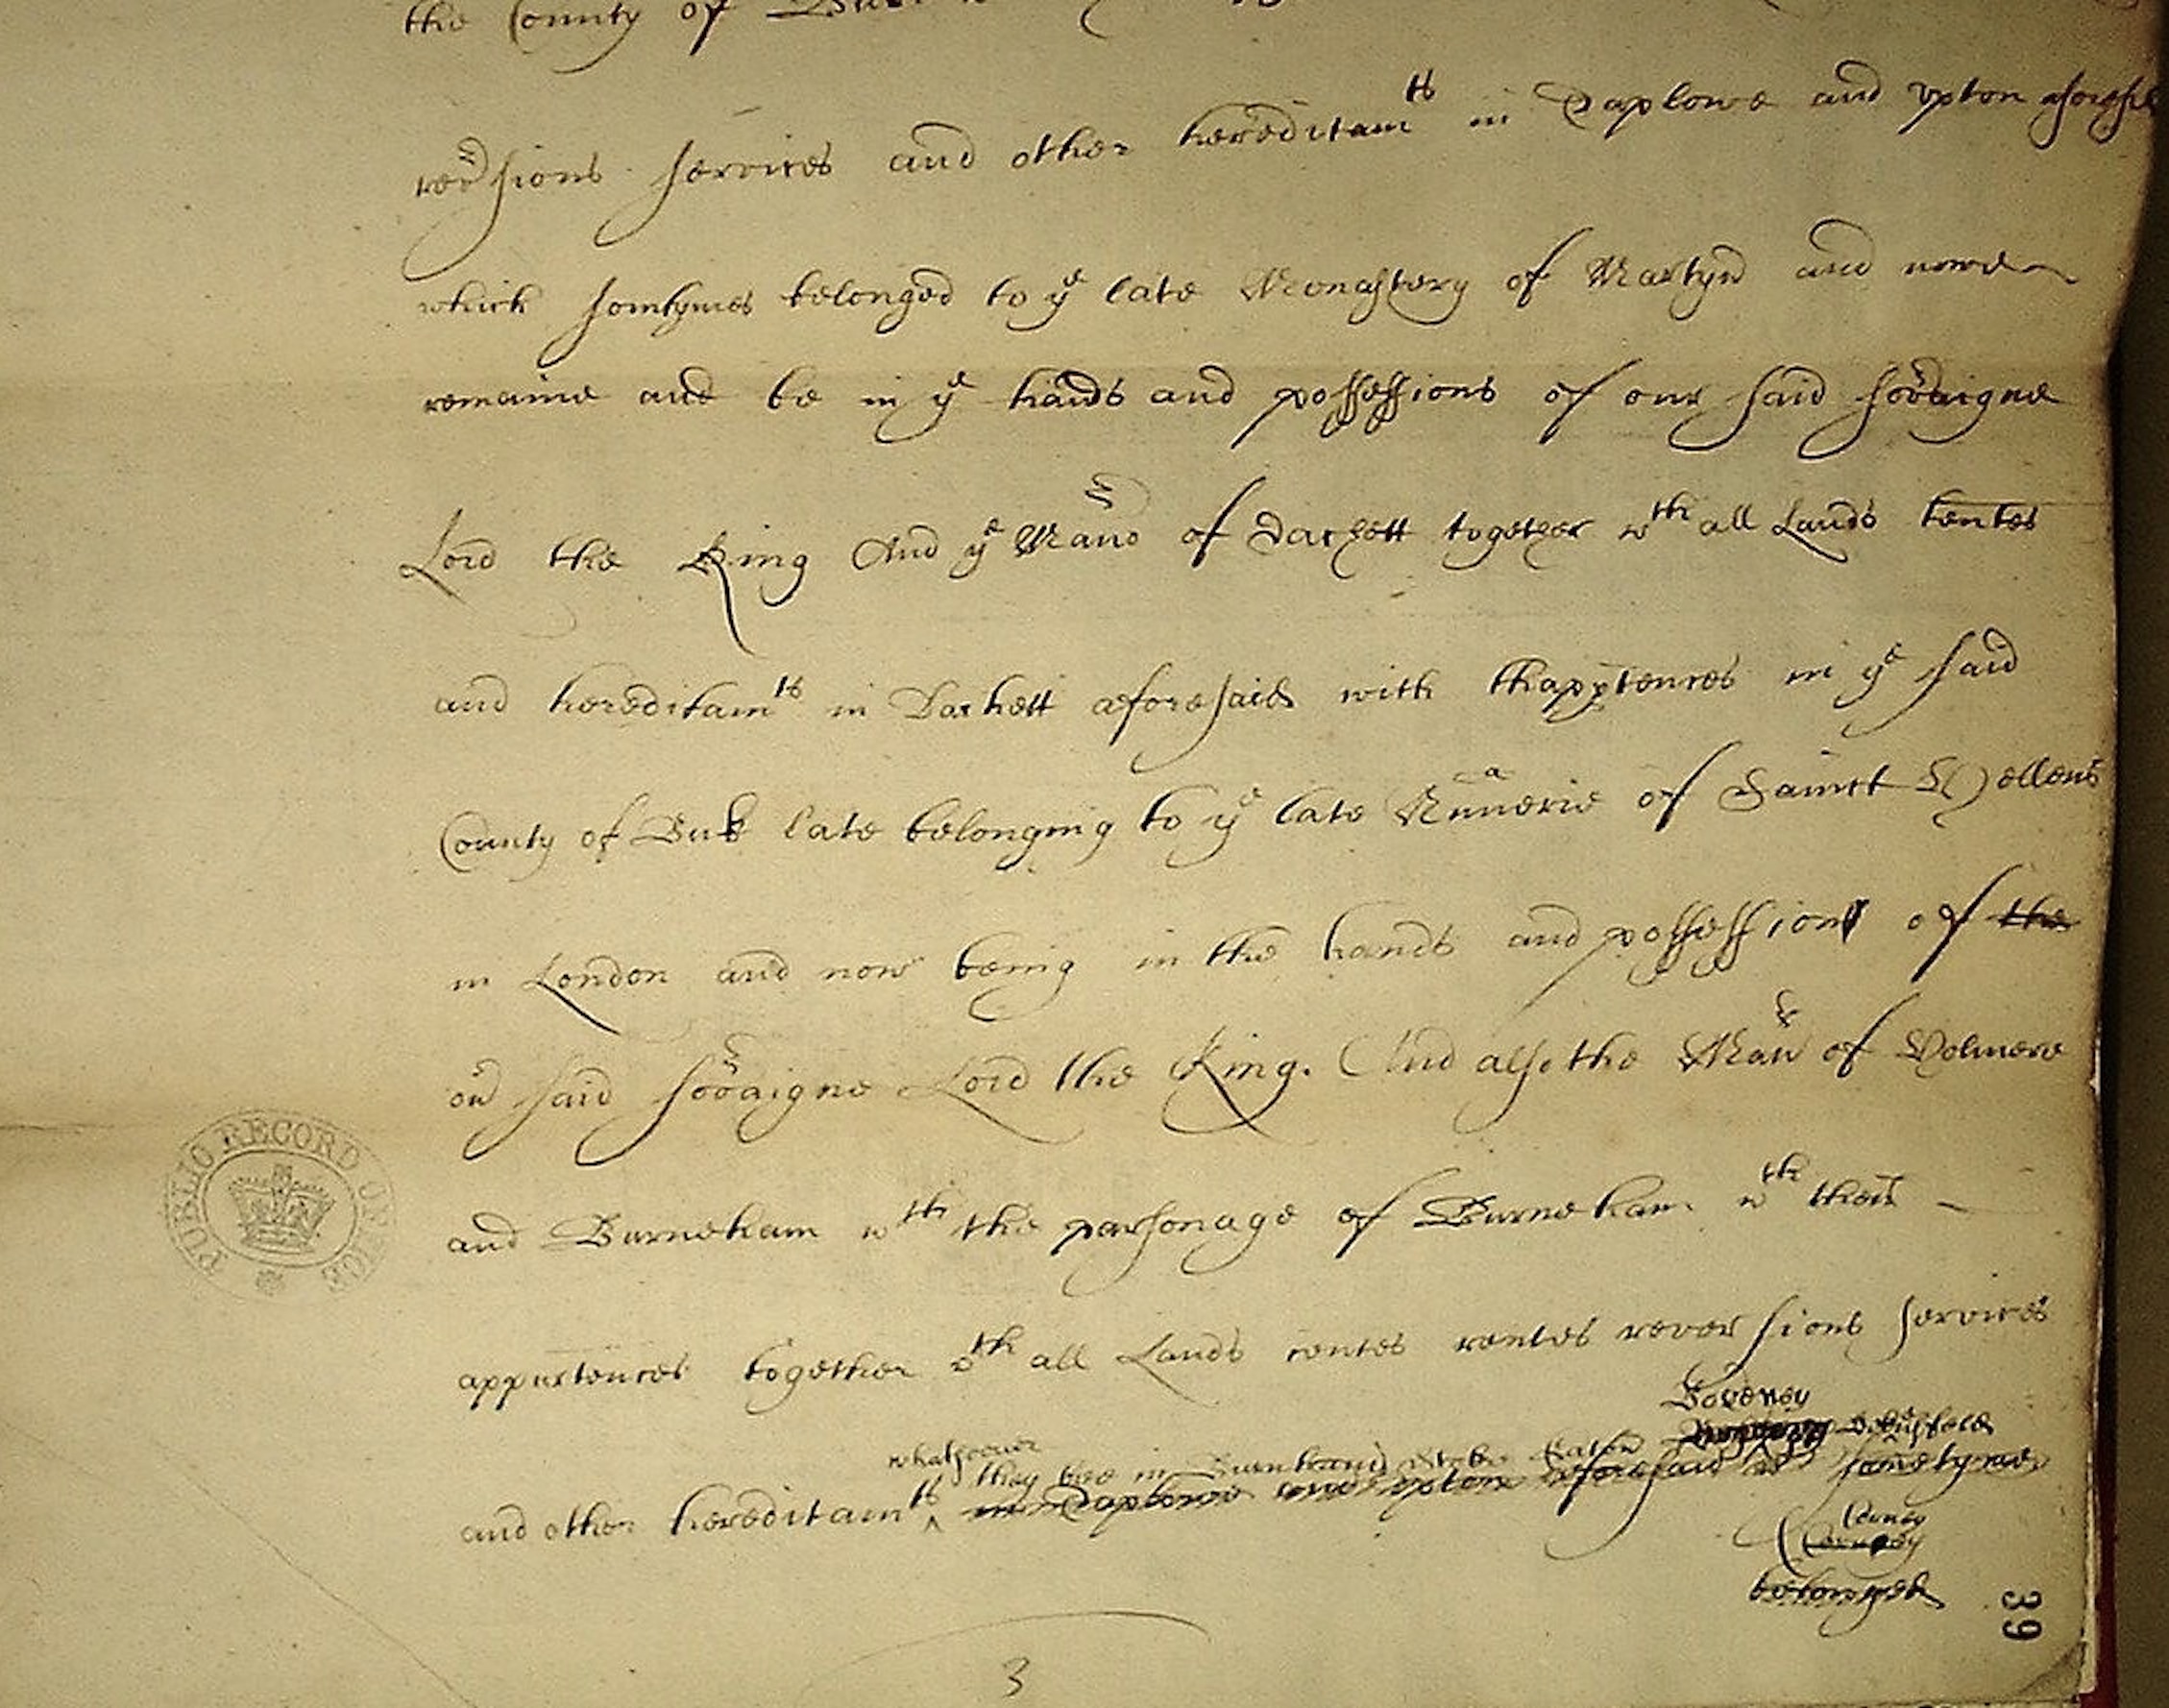 the County of
reversions services and other hereditamts in Taplowe and Upton aforesaid
which somtymes belonged to ye late Monastery of Martyn and nowe
remaine and be in ye hands and possessions of our said sovraigne
Lord the King And ye Mano of Dachett together wth all Lands tentes
and hereditamts in Dachett aforesaid with thapptences in ye said
County of Buk late belonging to ye late Nunerie of Sainct Hellens
in London and now being in the hands and possession of the
our said sovraigne Lord the King. And also the Man of Holmere
and Burneham wth the parsonage of Burneham wth their
appurtences together wth all Lands tentes rentes reversions services
Boveney
whatsoever
they bee in Burnham Stoke Eaton
and other hereditamts in Taplowe and Upton aforesaid sometyme
belonged
39
3
PUBLIC RECORD OFFICE